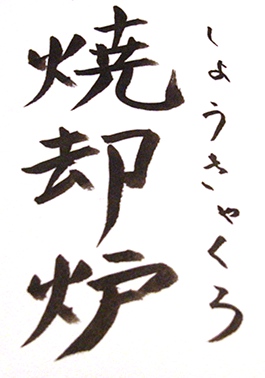 しょうきゃくろ
焼却炉